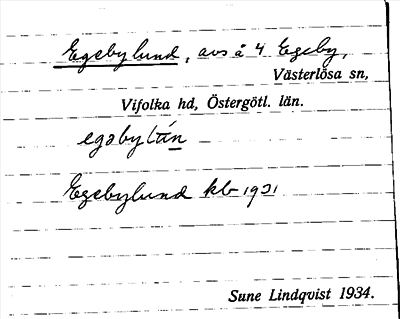 Egebylund, avs å 4 Egeby,
Västerlösa sn,
Vifolka hd, Östergötl. län.
egəbylún
Egebylund kb 1931
Sune Lindqvist 1934.